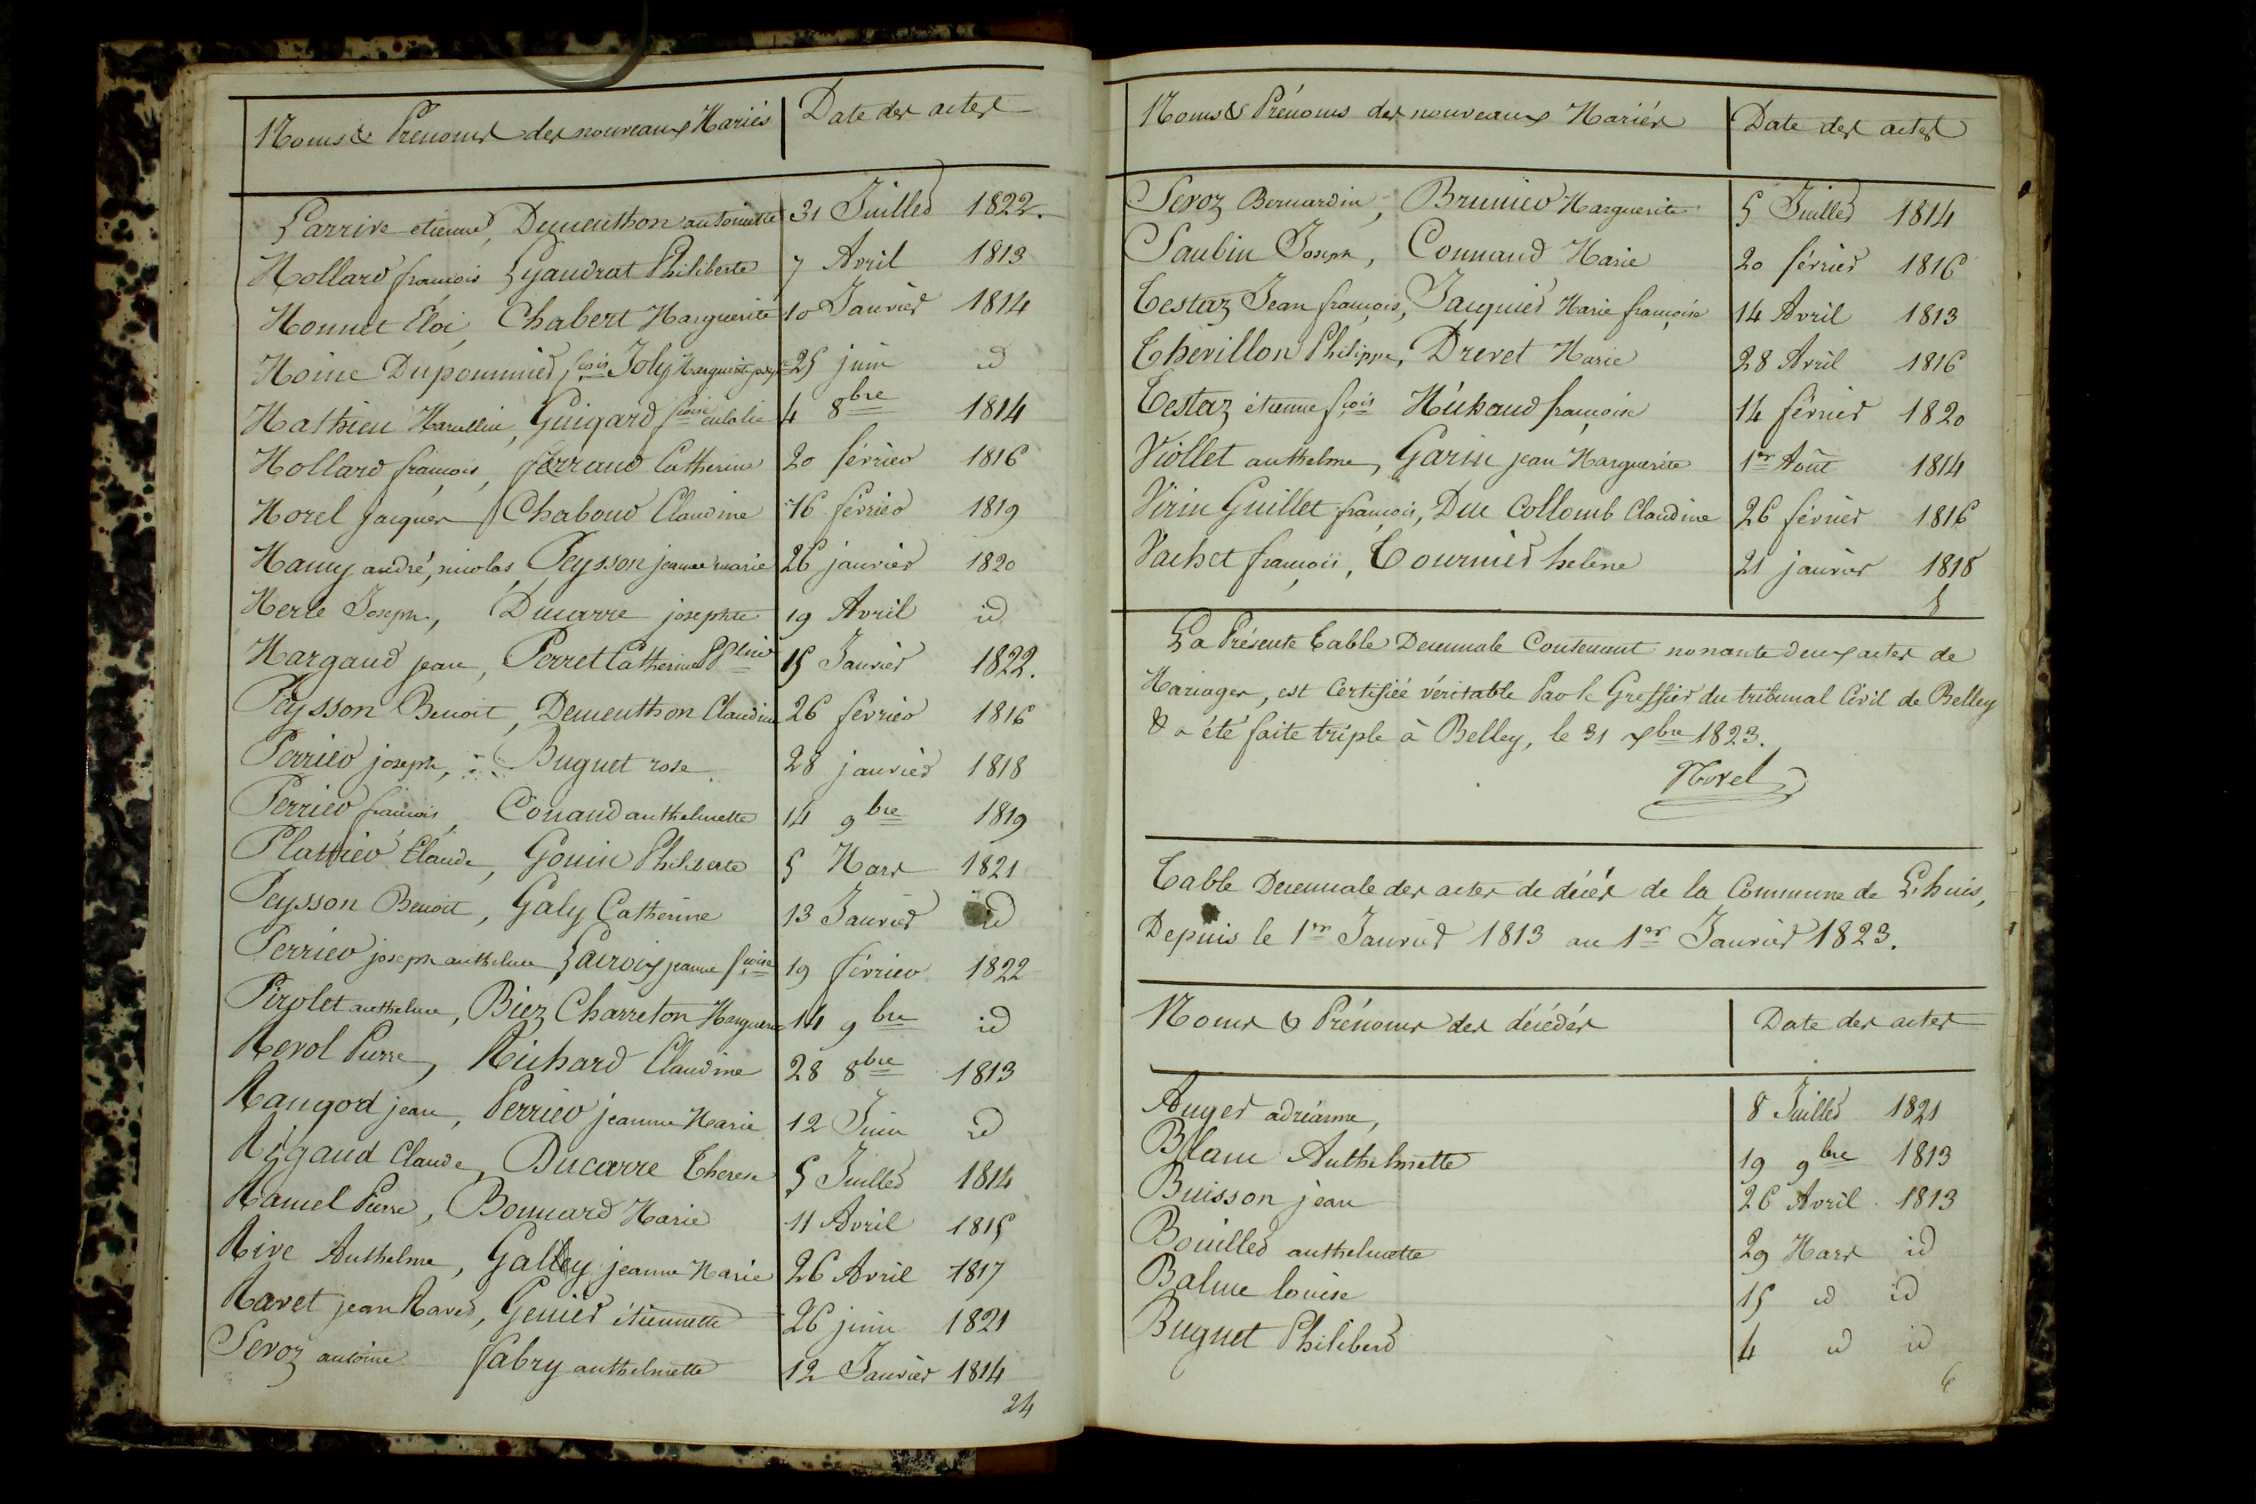 Noms & Prénoms des nouveaux Mariés Date des actes
Larrive etienne, Demeuthon antoinette 31 Juillet 1822.
Mollard françois Lyaudrat Philiberte 7 Avril 1813
Monnet Eloi, Chabert Marguerite 10 Janvier 1814
Moine Dupommier fçois Joly Marguerite 25 juin id
Mathieu Marcellin, Guigard fçoise eulalie 4 8bre 1814
Mollard françois, ferrand Catherine 20 février 1816
Morel jacques Chaboud Claudine 16 février 1819
Mamy andré, nicolas, Peysson jeanne marie 26 janvier 1820
Merle Joseph, Ducarre josephte 19 Avril id
Margaud jean, Perret Catherine 15 Janvier 1822.
Peysson Benoit, Demeuthon Claudine 26 février 1816
Perrier joseph, Buguet rose 28 janvier 1818
Perrier françois, Conand anthelmette 14 9bre 1819
Plattier Claude, Gouin Philiberte 5 Mars 1821
Peysson Benoit, Galy Catherine 13 Janvier id
Perrier joseph anthelme, Lacroix jeanne fçoise 19 février 1822
Pirolet anthelme, Biez Charreton Marguerite 14 9bre id
Revol Pierre, Richard Claudine 28 8bre 1813
Rangod jean, Perrier jeanne Marie 12 Juin id
Rigaud Claude, Ducarre Therese 5 Juillet 1814
Ramel Pierre, Bonnard Marie 11 Avril 1815
Rive Anthelme, Galley jeanne Marie 26 Avril 1817
Ravet jean Raved, Genier étiennette 26 juin 1821
Seroz antoine fabry anthelmette 12 Janvier 1814
24
Noms & Prénoms des nouveaux Mariés Date des actes
Seroz Bernardin, Brunier Marguerite 5 Juillet 1814
Saubin Joseph, Connand Marie 20 février 1816
Testaz Jean françois, Jacquier Marie françoise 14 Avril 1813
Thevillon Philippe, Drevet Marie 28 Avril 1816
Testaz étienne fçois Michaud françoise 14 février 1820
Viollet anthelme, Garin jean Marguerite 1er Août 1814
Virin Guillet françois, Duc Collomb Claudine 26 février 1816
Vachet françois, Tournier helene 21 janvier 1818
8
La Présente Table Decennale Contenant nonante deux actes de
Mariages, est Certifiée véritable Par le Greffier du tribunal Civil de Belley
& a été faite triple à Belley, le 31 xbre 1823.
Morel
Table Decennale des actes de décès de la Commune de Lhuis,
Depuis le 1er Janvier 1813 au 1er Janvier 1823.
Noms & Prénoms des décédés Date des actes
Auger adrianne, 8 Juillet 1821
Blanc Anthelmette 19 9bre 1813
Buisson jean 26 Avril 1813
Bouillet anthelmette 29 Mars id
Balme louise 15 id id
Buguet Philibert 4 id id
6